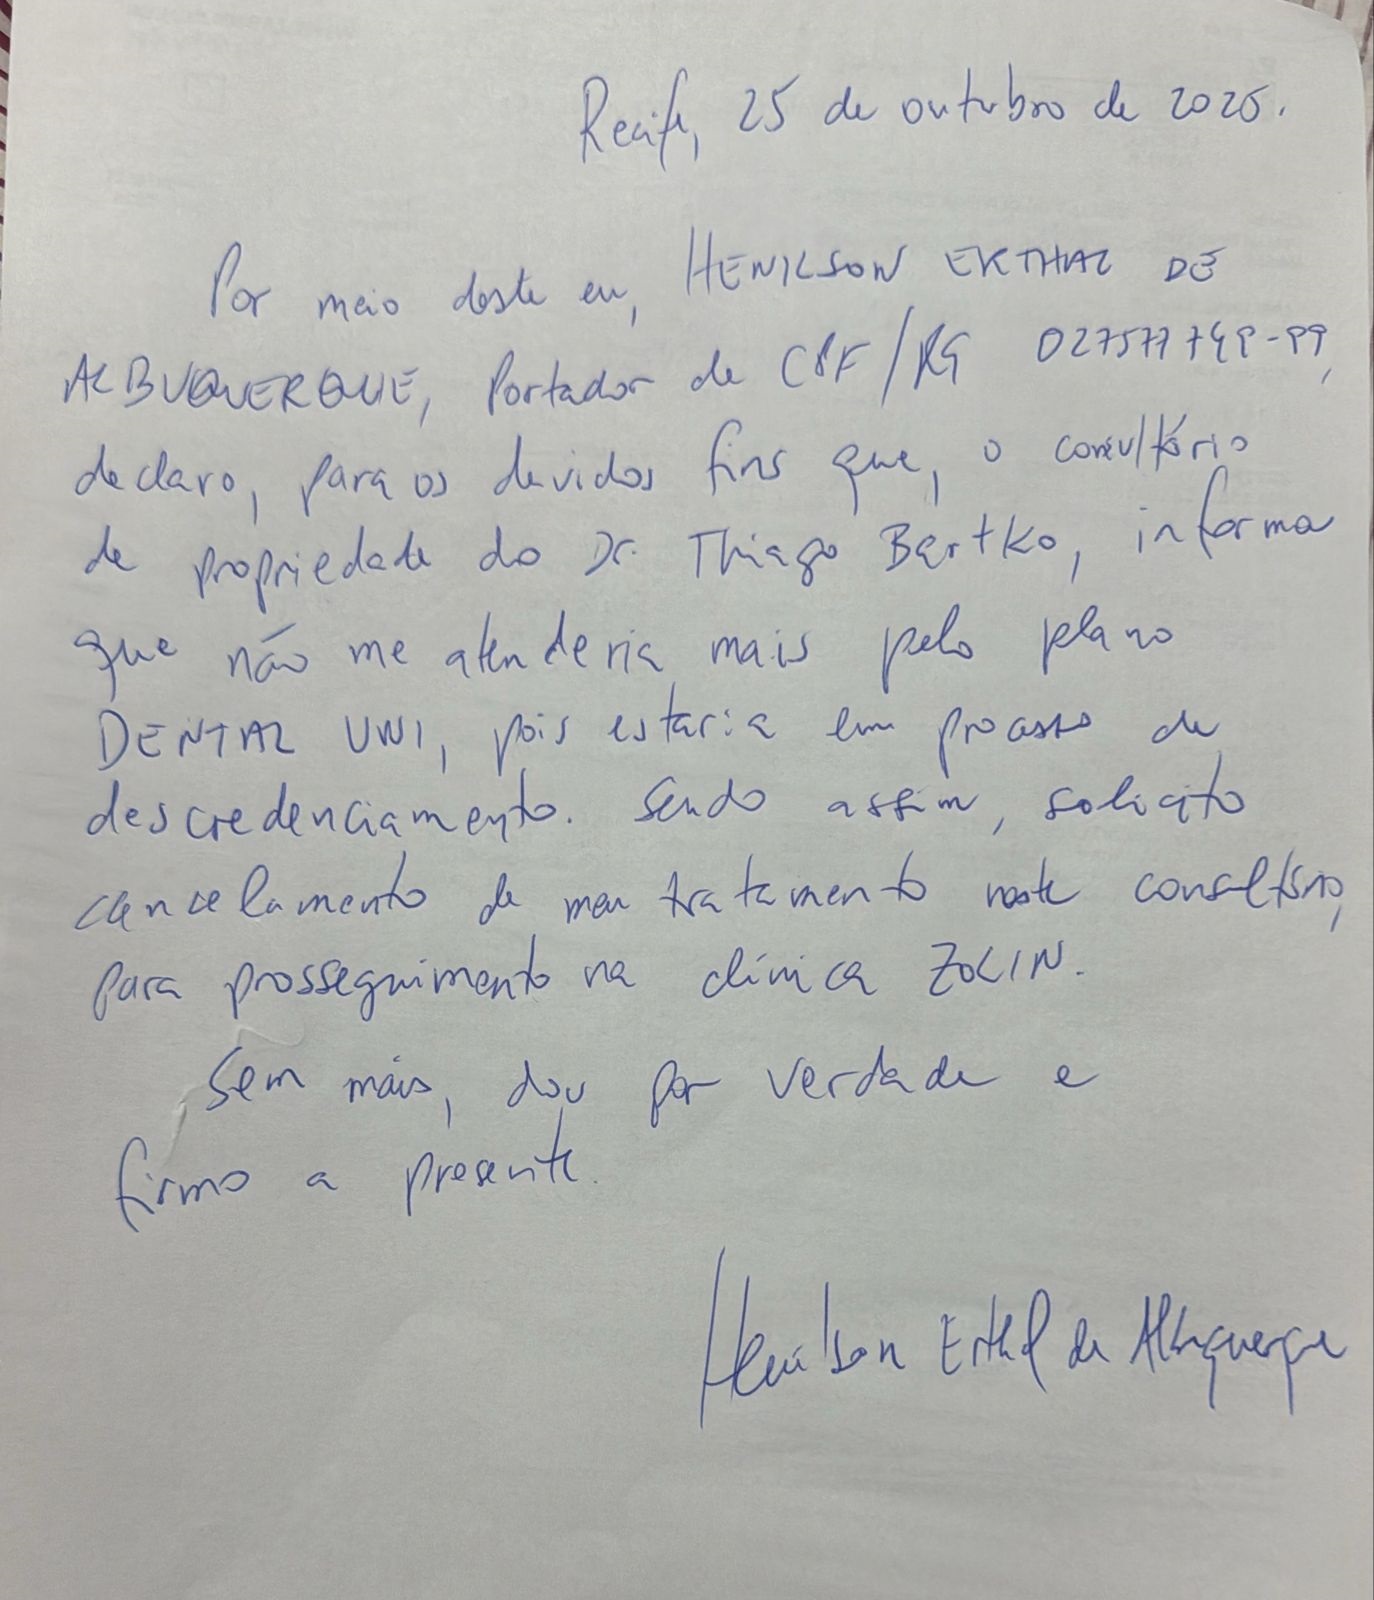 Recife, 25 de outubro de 2025.
Por meio deste eu, HENILSON ERTHAL DE
ALBUQUERQUE, Portador de CPF/RG 027577749-99,
declaro, para os devidos fins que, o consultório
de propriedade do Dr. Thiago Bertko, informa
que não me atenderia mais pelo plano
DENTAL UNI, pois estaria em processo de
descredenciamento. Sendo assim, solicito
cancelamento de meu tratamento neste consultório,
para prosseguimento na clínica ZOLIN.
Sem mais, dou por verdade e
firmo a presente.
Henilson Erthal de Albuquerque